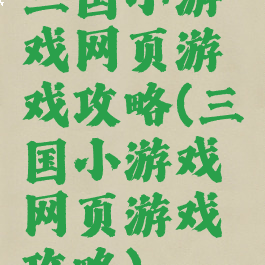 三国小游
戏网页游
戏攻略(三
国小游戏
网页游戏
攻略)